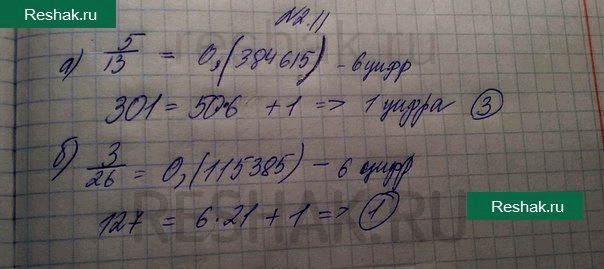 Reshak.ru
№2.11
а) 5/13 = 0,(384615) – 6 цифр
301 = 50·6 + 1 => 1 цифра ③
б) 3/26 = 0,(115385) – 6 цифр
127 = 6·21 + 1 => ①
Reshak.ru
RESHAK.RU
Reshak.ru